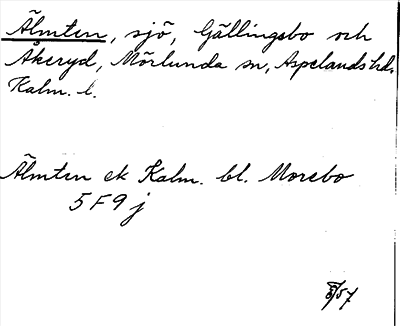 Älmten, sjö, Gällingsbo och
Åkeryd, Mörlunda sn, Aspelands hd,
Kalm. l.
Älmten ek Kalm. bl. Morebo
5 F 9 j